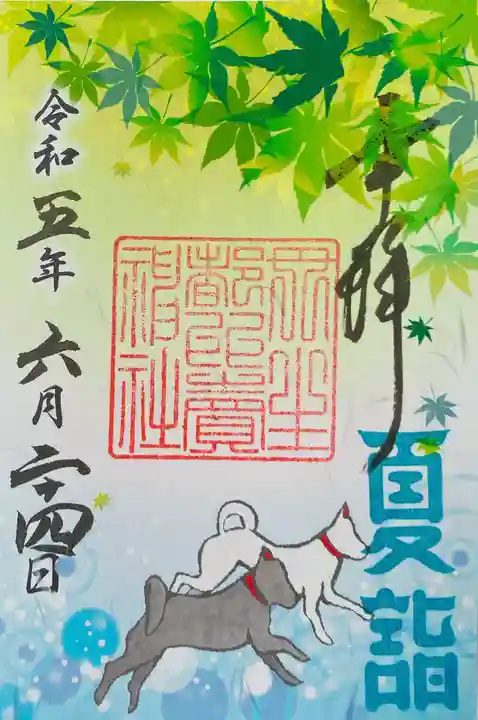 奉拝
夏詣
丹生
都比賣
神社
令和五年 六月二十四日